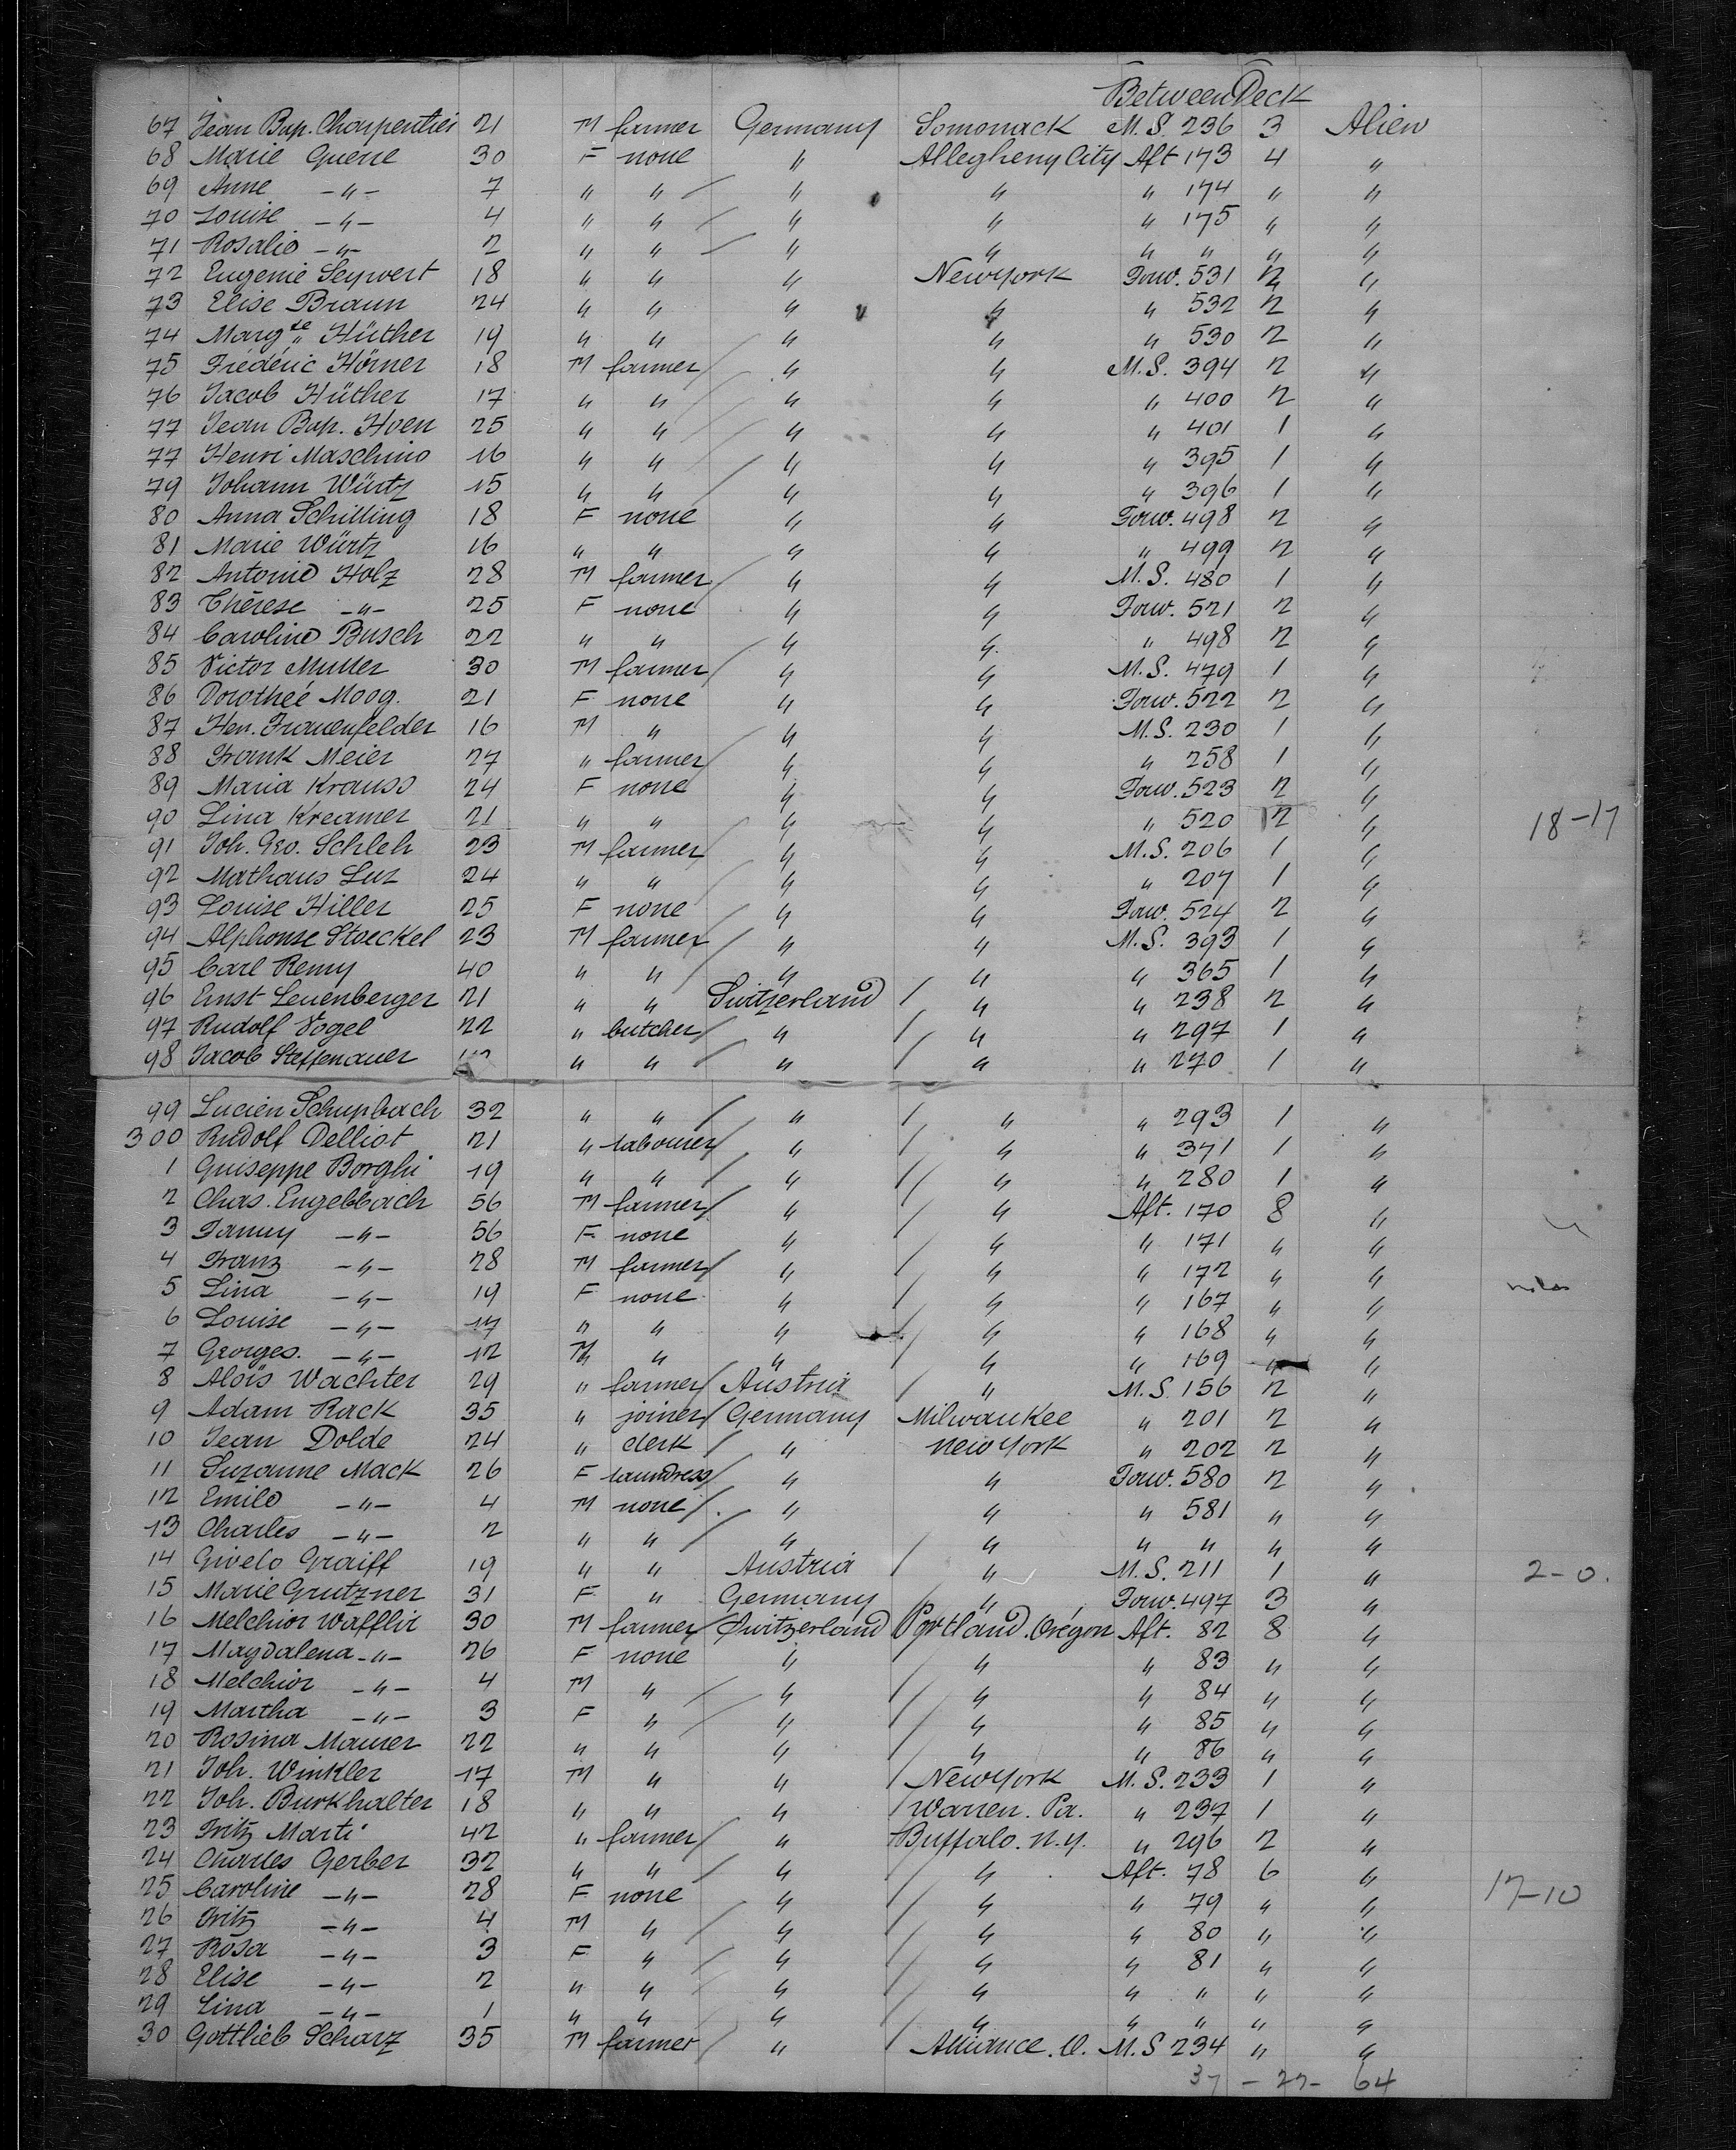 Between Deck
67 Jean Bap. Charpentier 21 M farmer Germany Somonack M.S. 236 3 Alien
68 Marie Guerre 30 F none " Allegheny City Aft 173 4 "
69 Anne -"- 7 " " " " " 174 " "
70 Louise -"- 4 " " " " " 175 " "
71 Rosalie -"- 2 " " " " " " " "
72 Eugenie Seywert 18 " " " New York Forw. 531 2 "
73 Elise Braun 24 " " " " " 532 2 "
74 Marg te Hüther 19 " " " " " 530 2 "
75 Frédéric Hörner 18 M farmer " " M.S. 394 2 "
76 Jacob Hüther 17 " " " " " 400 2 "
77 Jean Bap. Hoen 25 " " " " " 401 1 "
77 Henri Maschino 16 " " " " " 395 1 "
79 Johann Würtz 15 " " " " " 396 1 "
80 Anna Schilling 18 F none " " Forw. 498 2 "
81 Marie Würtz 16 " " " " " 499 2 "
82 Antonie Holz 28 M farmer " " M.S. 480 1 "
83 Thérese -"- 25 F none " " Forw. 521 2 "
84 Caroline Busch 22 " " " " " 498 2 "
85 Victor Muller 30 M farmer " " M.S. 479 1 "
86 Dorothée Moog. 21 F none " " Forw. 522 2 "
87 Hen. Frauenfelder 16 M " " " M.S. 230 1 "
88 Frank Meier 27 " farmer " " " 258 1 "
89 Maria Krauss 24 F none " " Forw. 523 2 "
90 Lina Kreamer 21 " " " " " 520 2 " 18-17
91 Joh. Geo. Schleh 23 M farmer " " M.S. 206 1 "
92 Mathaus Luz 24 " " " " " 207 1 "
93 Louise Hiller 25 F none " " Forw. 524 2 "
94 Alphonse Stoeckel 23 M farmer " " M.S. 393 1 "
95 Carl Remy 40 " " " " " 365 1 "
96 Ernst Leuenberger 21 " " Switzerland " " 238 2 "
97 Rudolf Vogel 22 " butcher " " " 297 1 "
98 Jacob Steffenauer " " " " " 270 1 "
99 Lucien Schupbach 32 " " " " " 293 1 "
300 Rudolf Delliot 21 " labourer " " " 371 1 "
1 Guiseppe Borghi 19 " " " " " 280 1 "
2 Chas. Engelbbach 56 M farmer " " Aft. 170 8 "
3 Fanny -"- 56 F none " " " 171 " "
4 Franz -"- 28 M farmer " " " 172 " "
5 Lina -"- 19 F none " " " 167 " "
6 Louise -"- 17 " " " " " 168 " "
7 Georges. -"- 12 M " " " " 169 " "
8 Aloïs Wachter 29 " farmer Austria " M.S. 156 2 "
9 Adam Rack 35 " joiner Germany Milwaukee " 201 2 "
10 Jean Dolde 24 " clerk " New York " 202 2 "
11 Suzanne Mack 26 F laundress " " Forw. 580 2 "
12 Emile -"- 4 M none " " " 581 " "
13 Charles -"- 2 " " " " " " " "
14 Givelo Graiff 19 " " Austria " M.S. 211 1 " 2-0.
15 Marie Grutzner 31 F " Germany " Forw. 497 3 "
16 Melchior Wafflir 30 M farmer Switzerland Portland. Oregon Aft. 82 8 "
17 Magdalena -"- 26 F none " " " 83 " "
18 Melchior -"- 4 M " " " " 84 " "
19 Martha -"- 3 F " " " " 85 " "
20 Rosina Maurer 22 " " " " " 86 " "
21 Joh. Winkler 17 M " " New York M.S. 233 1 "
22 Joh. Burkhalter 18 " " " Warren. Pa. " 237 1 "
23 Fritz Marti 42 " farmer " Buffalo. N.Y. " 296 2 "
24 Charles Gerber 32 " " " " Aft. 78 6 "
25 Caroline -"- 28 F none " " " 79 " " 17-10
26 Fritz -"- 4 M " " " " 80 " "
27 Rosa -"- 3 F " " " " 81 " "
28 Elise -"- 2 " " " " " " " "
29 Lina -"- 1 " " " " " " " "
30 Gottlieb Scharz 35 M farmer " Alliance. O. M.S 234 " "
37 - 27 - 64